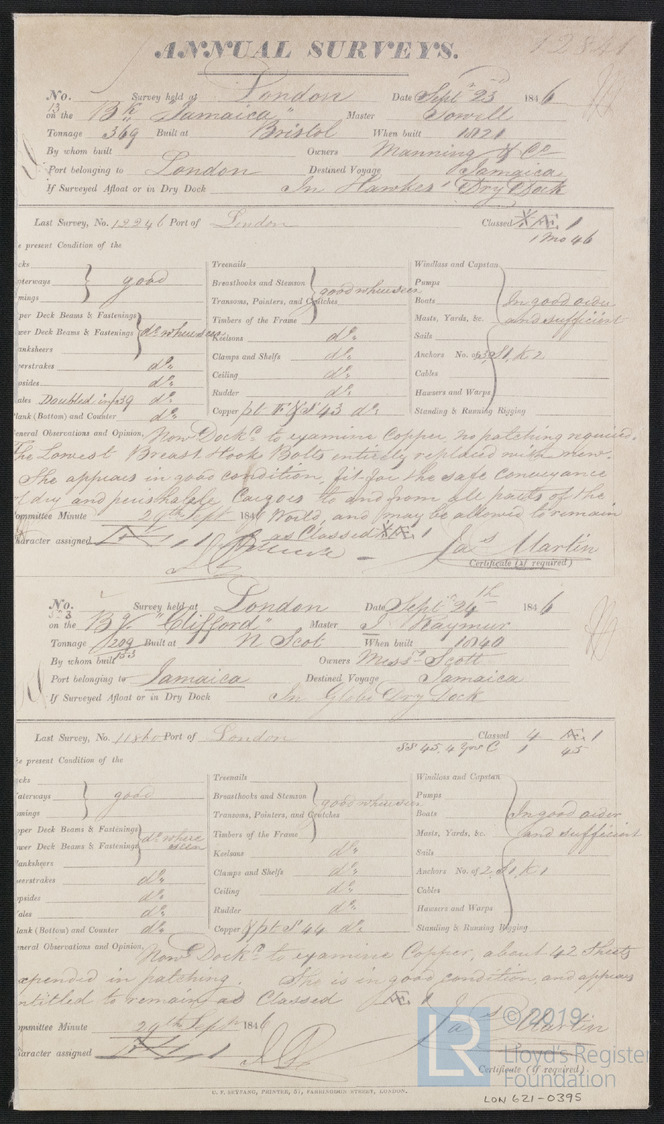 ANNUAL SURVEYS. 12841
No. 13 Survey held at London Date Sept 23 1846
on the Bk "Jamaica" Master Towill
Tonnage 369 Built at Bristol When built 1821
By whom built Owners Manning & Co
Port belonging to London Destined Voyage Jamaica
If Surveyed Afloat or in Dry Dock In Hawkes' Dry Dock
Last Survey, No. 12246 Port of London Classed Æ 1
1 Mo 46
present Condition of the
cks
terways good
mings
per Deck Beams & Fastenings
wer Deck Beams & Fastenings do where seen
anksheers
erstrakes do
psides do
ales Doubled in/39 do
lank (Bottom) and Counter do
Treenails
Breasthooks and Stemson good where seen
Transoms, Pointers, and Crutches
Timbers of the Frame
Keelsons do
Clamps and Shelfs do
Ceiling do
Rudder do
Copper pt F&S 43 do
Windlass and Capstan
Pumps
Boats In good order
Masts, Yards, &c. and sufficient
Sails
Anchors No. of 3, S1, K2
Cables
Hawsers and Warps
Standing & Running Rigging
eneral Observations and Opinion, Now Dockd to examine Copper, no patching required.
The Lowest Breast Hook Bolts entirely replaced with new.
She appears in good condition, fit for the safe conveyance
of dry and perishable Cargoes to and from all parts of the
ommittee Minute 29th Sept 1846 World, and may be allowed to remain
haracter assigned as Classed Æ 1
Jas Martin
Certificate (if required)
No. Survey held at London Date Sept 24th 1846
on the Bg "Clifford" Master J Raymur
Tonnage 209 Built at N Scot When built 1840
153
By whom built Owners Messrs Scott
Port belonging to Jamaica Destined Voyage Jamaica
If Surveyed Afloat or in Dry Dock In Globe Dry Dock
Last Survey, No. 11860 Port of London Classed 4 Æ 1
SS 45, 4 Yrs C 1 45
present Condition of the
cks
aterways good
mings
pper Deck Beams & Fastenings
wer Deck Beams & Fastenings do where seen
anksheers
erstrakes do
opsides do
ales do
lank (Bottom) and Counter do
Treenails
Breasthooks and Stemson good where seen
Transoms, Pointers, and Crutches
Timbers of the Frame
Keelsons do
Clamps and Shelfs do
Ceiling do
Rudder do
Copper pt S 44 do
Windlass and Capstan
Pumps
Boats In good order
Masts, Yards, &c. and sufficient
Sails
Anchors No. of 2, S1, K1
Cables
Hawsers and Warps
Standing & Running Rigging
eneral Observations and Opinion, Now Dockd to examine Copper, about 42 Sheets
expended in patching. She is in good condition, and appears
entitled to remain as Classed Æ 1
ommittee Minute 29th Sept 1846 Jas Martin
haracter assigned
Certificate (if required)
LR © 2019
Lloyd's Register
Foundation
C. F. SEYFANG, PRINTER, 57, FARRINGDON STREET, LONDON.
LON 621-0395